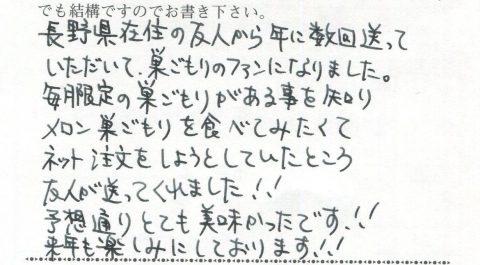 でも結構ですのでお書き下さい。
長野県在住の友人から年に数回送って
いただいて、巣ごもりのファンになりました。
毎月限定の巣ごもりがある事を知り
メロン巣ごもりを食べてみたくて
ネット注文をしようとしていたところ
友人が送ってくれました!!
予想通りとても美味かったです!!
来年も楽しみにしております!!!